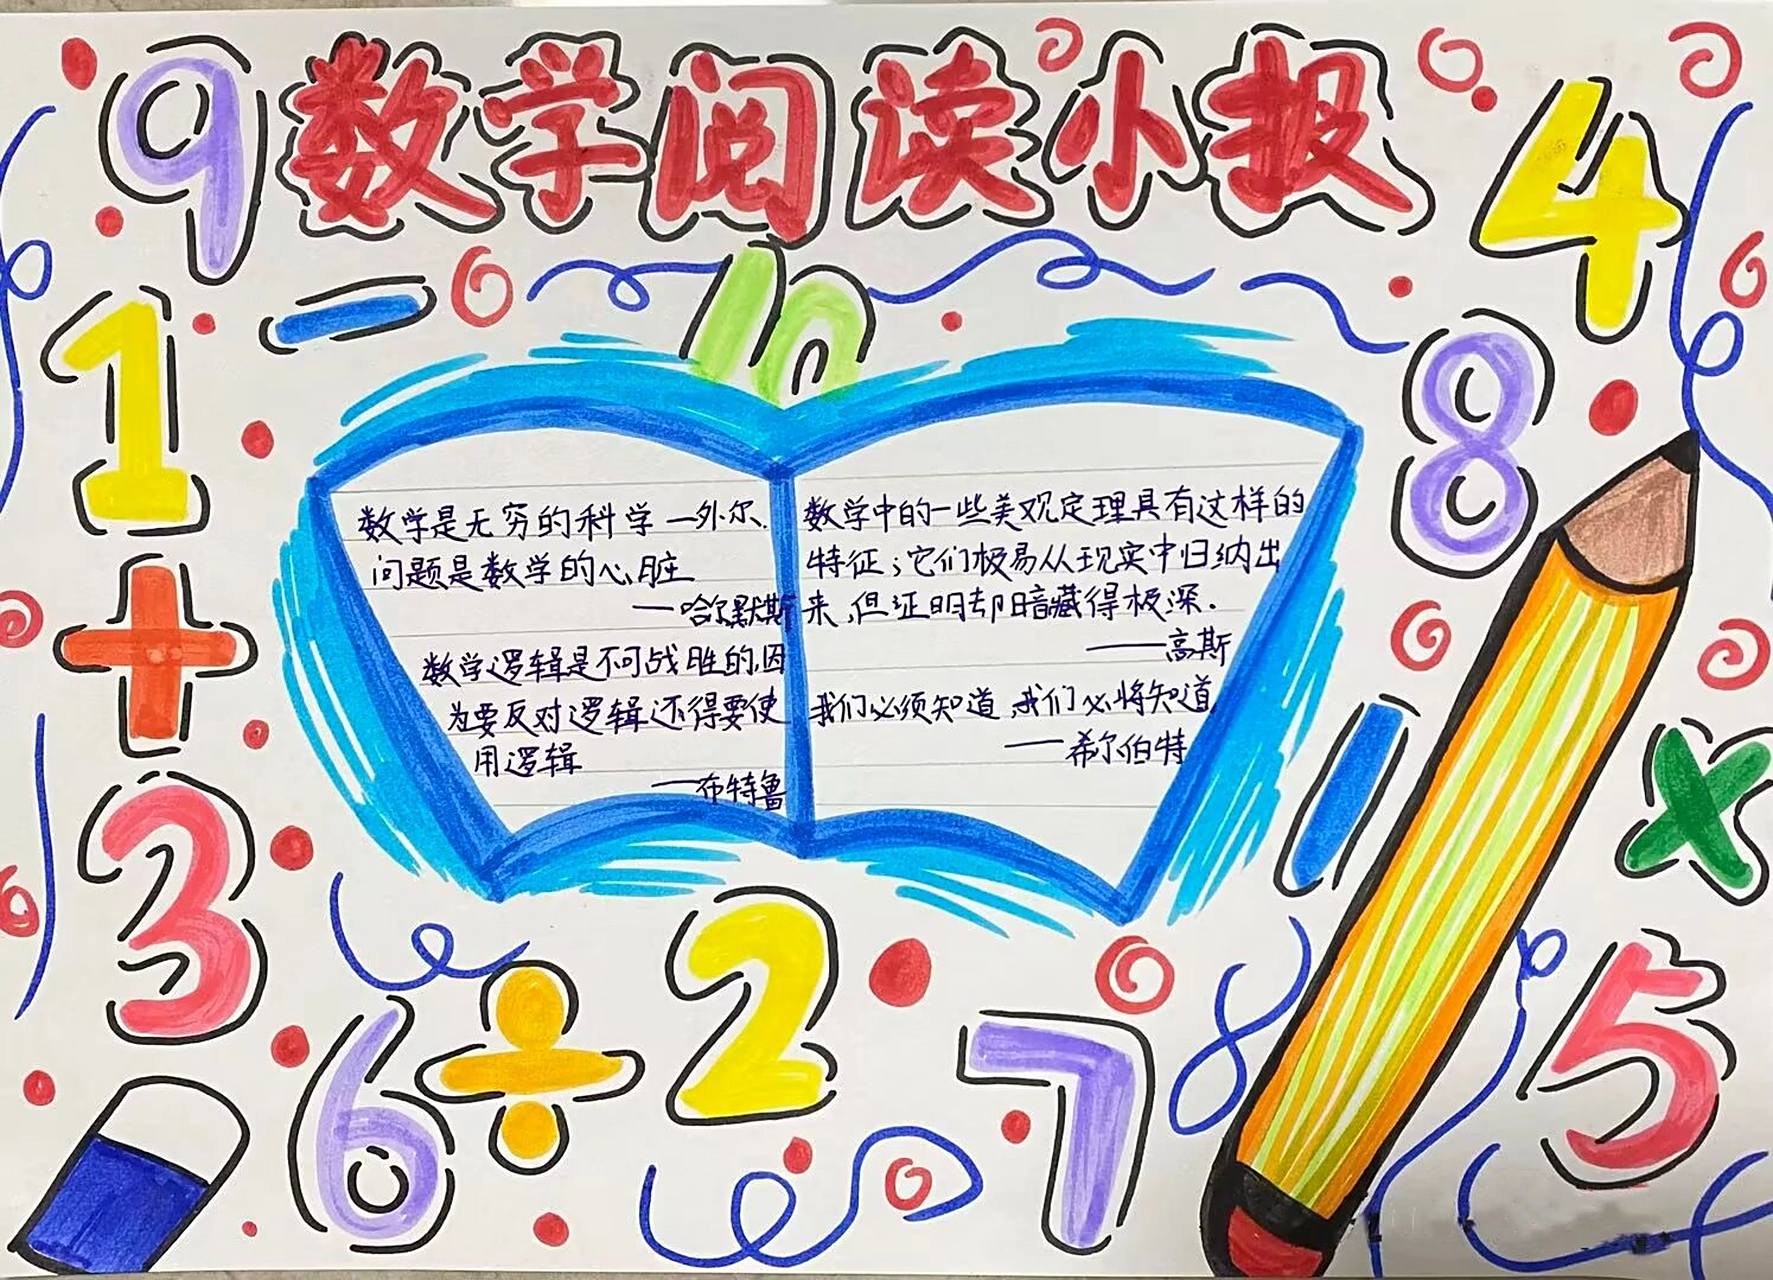 数学阅读小报
9
4
1
8
3
6
2
7
5
数学是无穷的科学—外尔.
问题是数学的心脏
—哈尔默斯
数学逻辑是不可战胜的,因
为要反对逻辑还得要使
用逻辑
—布特鲁
数学中的一些美观定理具有这样的
特征;它们极易从现实中归纳出
来,但证明却暗藏得极深.
——高斯
我们必须知道,我们必将知道
——希尔伯特
+
÷
×